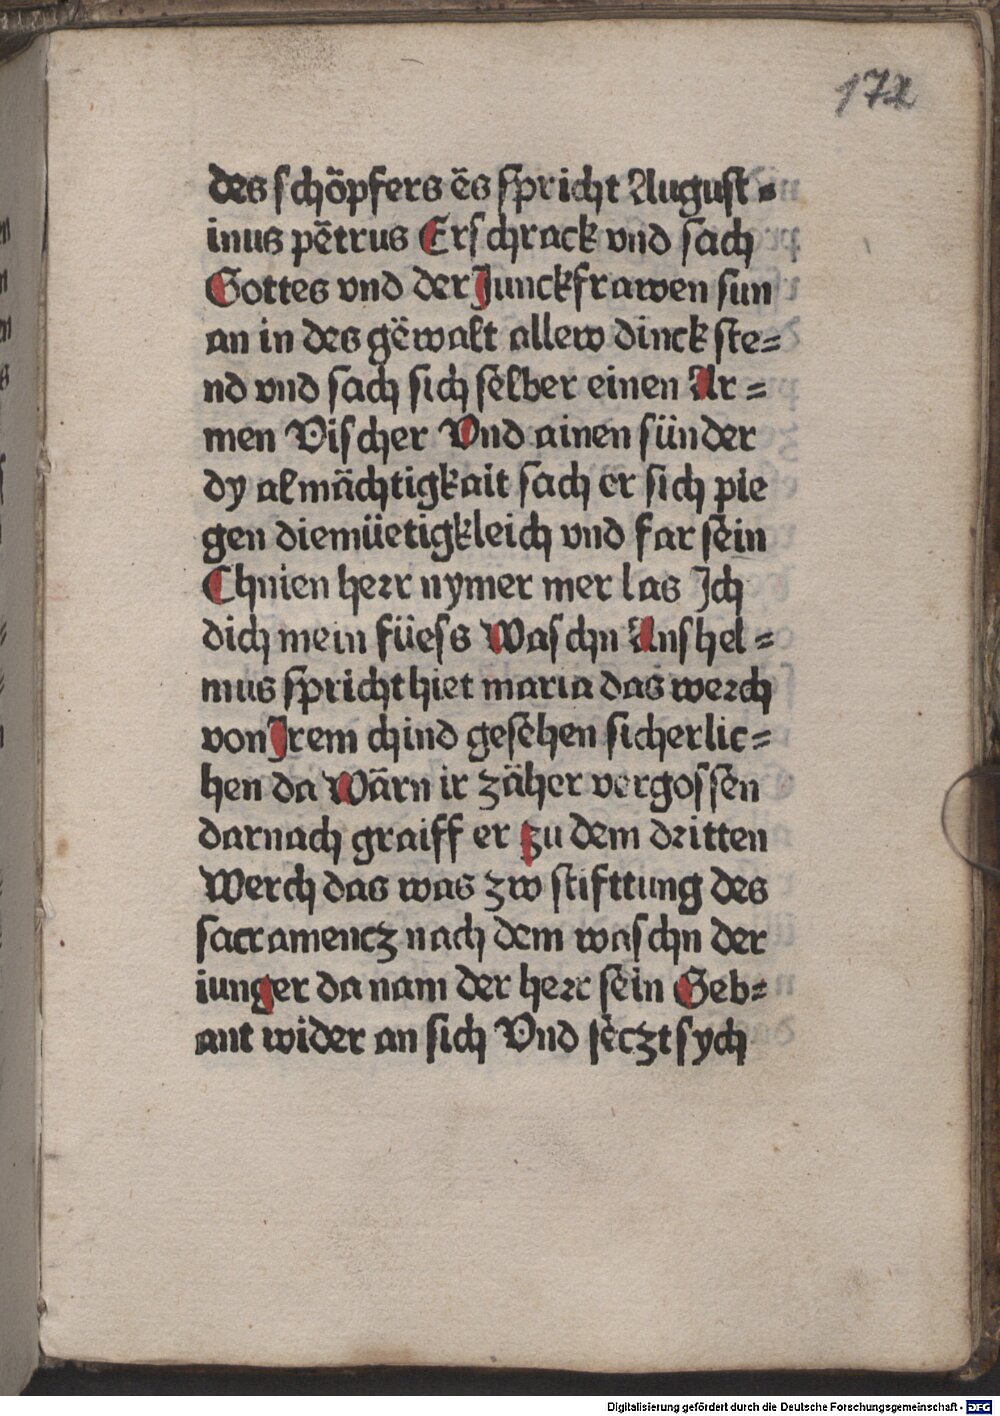 172
des schöpfers ës spricht August=
inus pëtrus Erschrack vnd sach
Gottes vnd der Junckfrawen sun
an in des gëwalt allew dinck ste=
nd vnd sach sich sëlber einen Ar=
men Vischer Vnd ainen sünder
dy almächtigkait sach er sich pie
gen diemüetigkleich vnd far sëin
Chnien herr nymer mer las Jch
dich mein füess Waschn Anshel=
mus spricht hiet maria das werch
von Jrem chind gesëhen sicherlic=
hen da Wärn ir zäher vergossen
darnach graiff er zu dem dritten
Werch das was zw stifttung des
sacramencz nach dem waschn der
iunger da nam der herr sëin Geb=
ant wider an sich Vnd sëczt sych
Digitalisierung gefördert durch die Deutsche Forschungsgemeinschaft - DFG